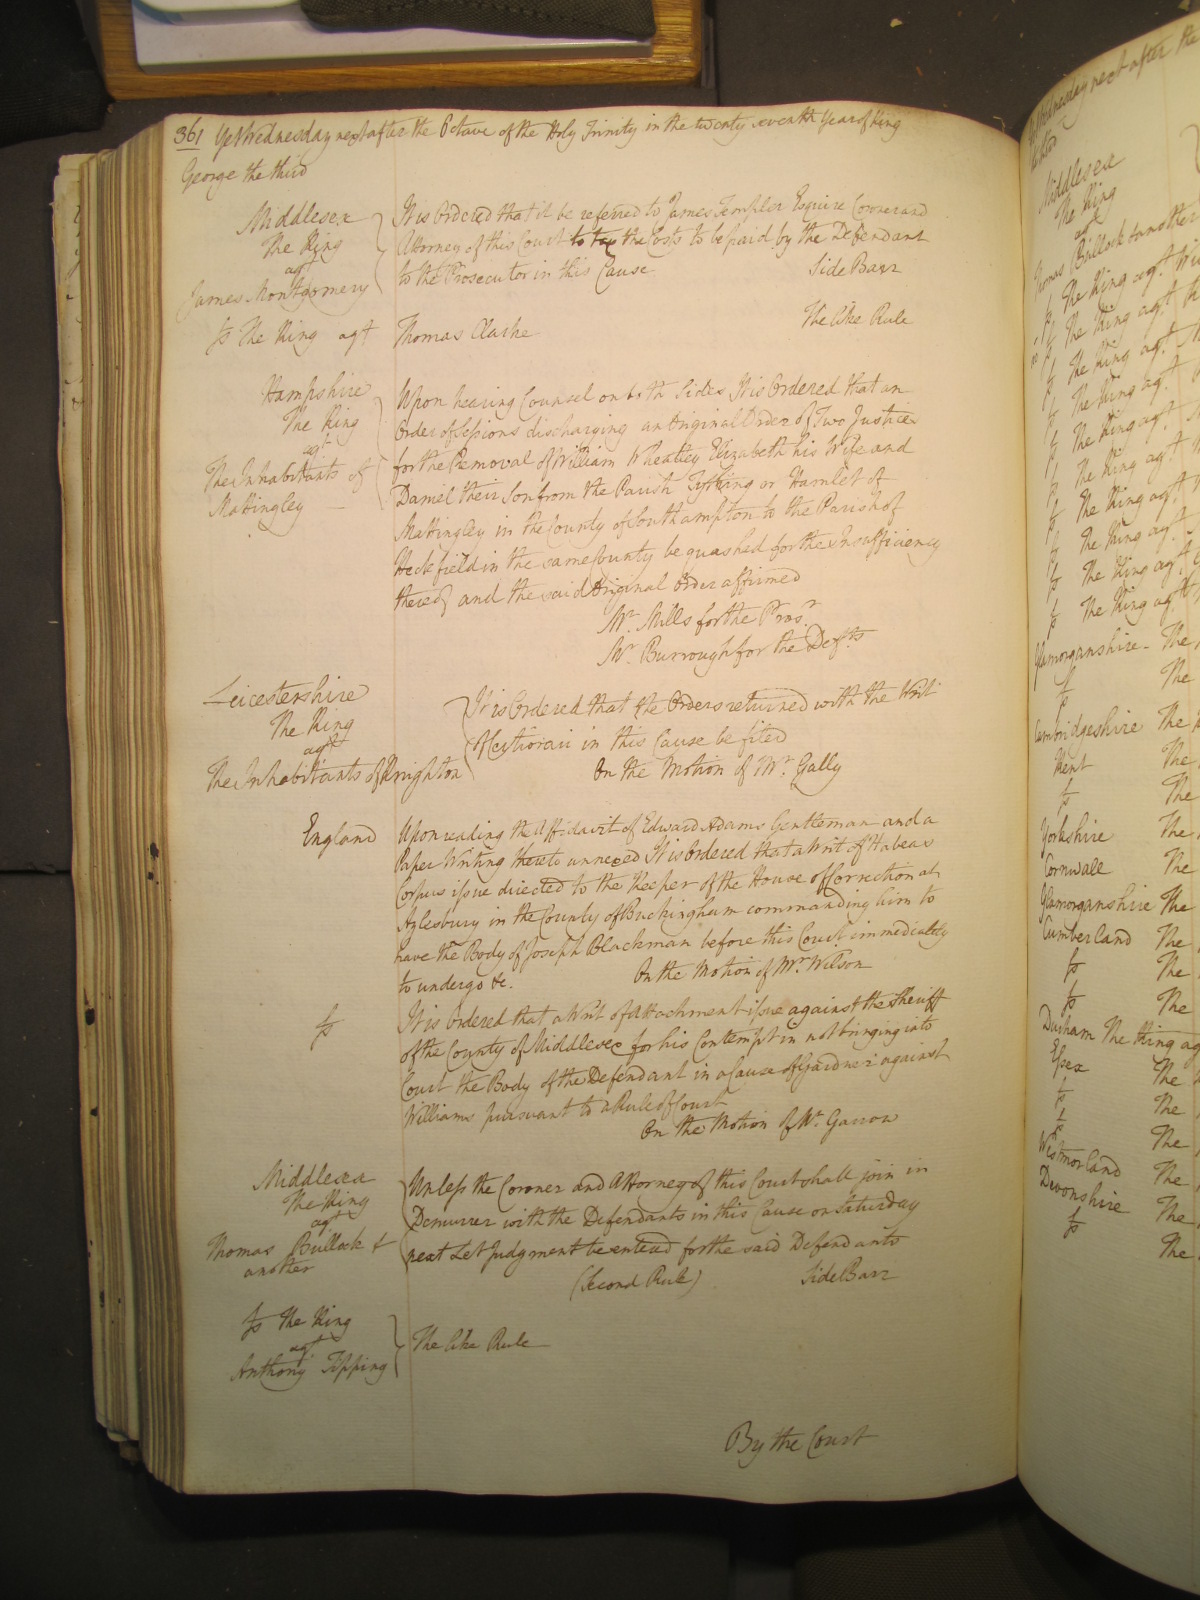 361 Yet Wednesday next after the Octave of the Holy Trinity in the twenty seventh Year of King
George the third
Middlesex
The King
agt
James Montgomery
It is Ordered that it be referred to James Templer Esquire Coroner and
Attorney of this Court to tax the Costs to be paid by the Defendant
to the Prosecutor in this Cause
Side Barr
The King agt Thomas Clarke
The like Rule
Hampshire
The King
agt
The Inhabitants of
Mattingley
Upon hearing Counsel on both Sides It is Ordered that an
Order of Sessions discharging an Original Order of Two Justices
for the Removal of William Wheatley Elizabeth his Wife and
Daniel their Son from the Parish Tything or Hamlet of
Mattingley in the County of Southampton to the Parish of
Heckfield in the same County be quashed for the Insufficiency
thereof and the said Original Order affirmed
Mr. Mills for the Prosr.
Mr. Burrough for the Defts
Leicestershire
The King
agt
The Inhabitants of Knighton
It is Ordered that the Orders returned with the Writ
of Certiorari in this Cause be filed
On the Motion of Mr. Gally
England
Upon reading the Affidavit of Edward Adams Gentleman and a
Paper Writing thereto annexed It is Ordered that a Writ of Habeas
Corpus issue directed to the Keeper of the House of Correction at
Aylesbury in the County of Buckingham commanding him to
have the Body of Joseph Blackman before this Court immediately
to undergo &c.
On the Motion of Mr. Wilson
It is Ordered that a Writ of Attachment issue against the Sheriff
of the County of Middlesex for his Contempt in not bringing into
Court the Body of the Defendant in a Cause of Gardner against
Williams pursuant to a Rule of Court
On the Motion of Mr. Garrow
Middlesex
The King
agt
Thomas Bullock &
another
Unless the Coroner and Attorney of this Court shall join in
Demurrer with the Defendants in this Cause on Saturday
next Let Judgment be entered for the said Defendants
(Second Rule)
Side Barr
The King
agt
Anthony Tipping
The like Rule
By the Court
Wednesday next after the
Middlesex
The King
agt
Thomas Bullock & another
The King agt
The King agt
The King agt
The King agt
The King agt
The King agt
The King agt
The King agt
The King agt
The King agt
Glamorganshire - The
The
Cambridgeshire The
Kent The
The
Yorkshire The
Cornwall The
Glamorganshire The
Cumberland The
The
The
Durham The King ag
Essex The
The
The
Westmorland The
Devonshire The
The